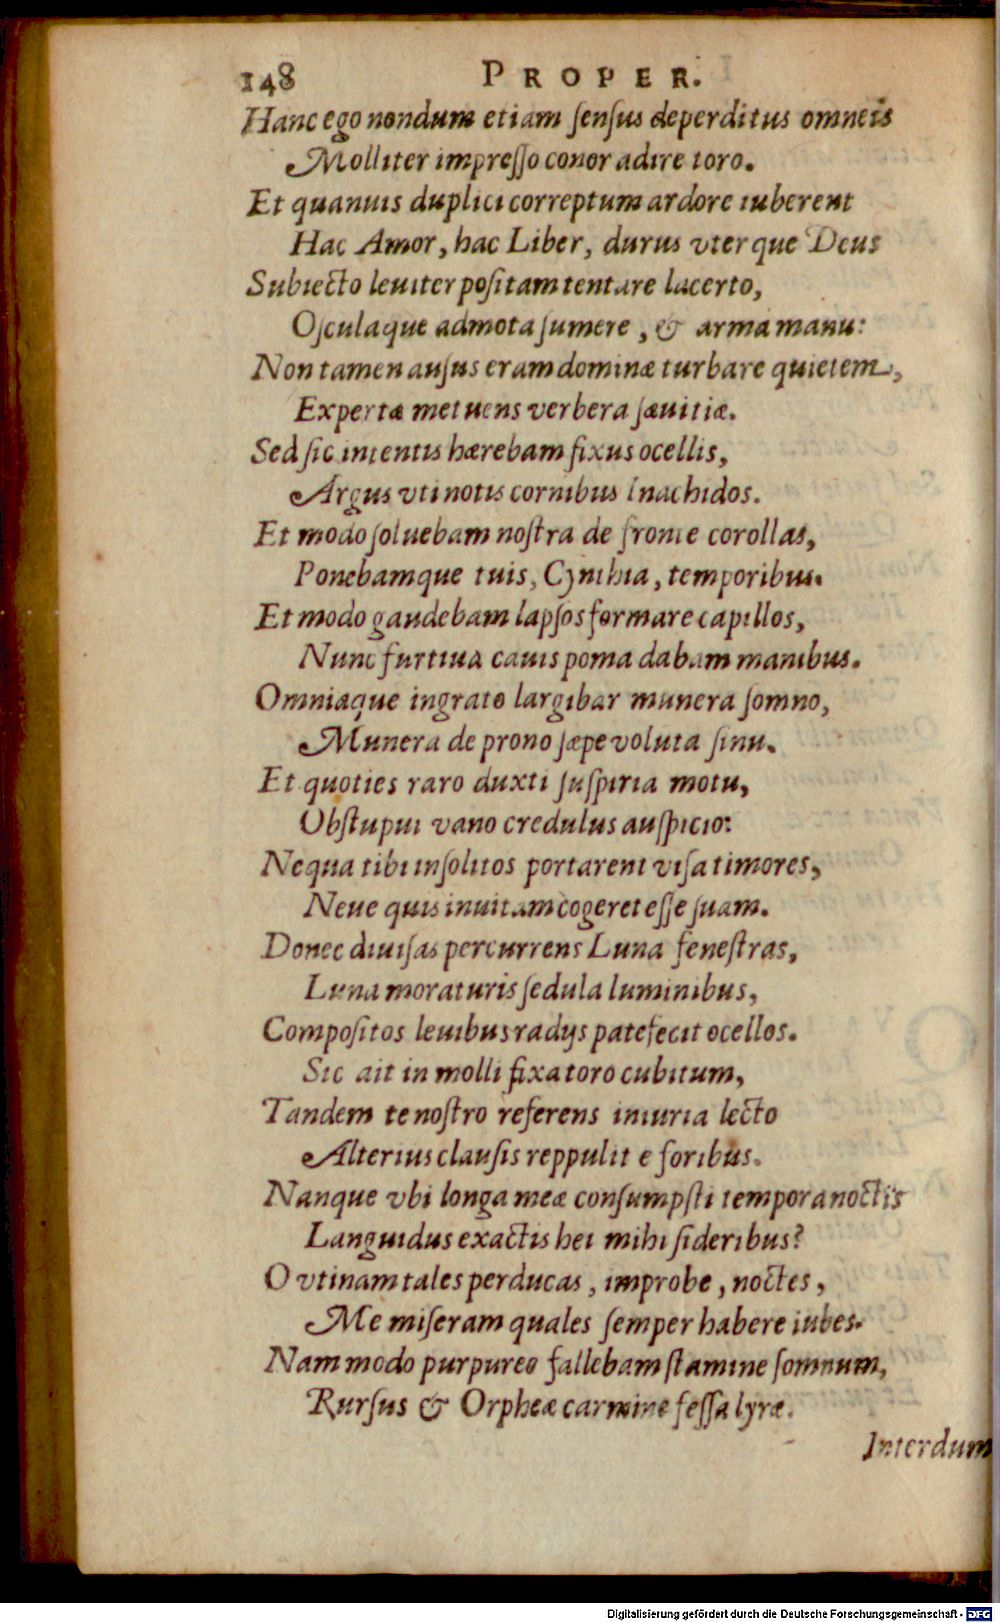 148 PROPER.
Hanc ego nondum etiam ſenſus deperditus omneis
Molliter impreſſo conor adire toro.
Et quanuis duplici correptum ardore iuberent
Hac Amor, hac Liber, durus vterque Deus
Subiecto leuiter poſitam tentare lacerto,
Oſculaque admota ſumere, & arma manu:
Non tamen auſus eram dominæ turbare quietem,
Expertæ metuens verbera ſæuitiæ.
Sed ſic intentis hærebam fixus ocellis,
Argus vti notis cornibus Inachidos.
Et modo ſoluebam noſtra de fronte corollas,
Ponebamque tuis, Cynthia, temporibus.
Et modo gaudebam lapſos formare capillos,
Nunc furtiua cauis poma dabam manibus.
Omniaque ingrato largibar munera ſomno,
Munera de prono ſæpe voluta ſinu.
Et quoties raro duxti ſuſpiria motu,
Obſtupui vano credulus auſpicio:
Ne qua tibi inſolitos portarent viſa timores,
Neue quis inuitam cogeret eſſe ſuam.
Donec diuiſas percurrens Luna feneſtras,
Luna moraturis ſedula luminibus,
Compoſitos leuibus radijs patefecit ocellos.
Sic ait in molli fixa toro cubitum,
Tandem te noſtro referens iniuria lecto
Alterius clauſis reppulit e foribus.
Nanque vbi longa meæ conſumpſti tempora noctis
Languidus exactis hei mihi ſideribus?
O vtinam tales perducas, improbe, noctes,
Me miſeram quales ſemper habere iubes.
Nam modo purpureo fallebam ſtamine ſomnum,
Rurſus & Orpheæ carmine feſſa lyræ.
Interdum
Digitalisierung gefördert durch die Deutsche Forschungsgemeinschaft - DFG